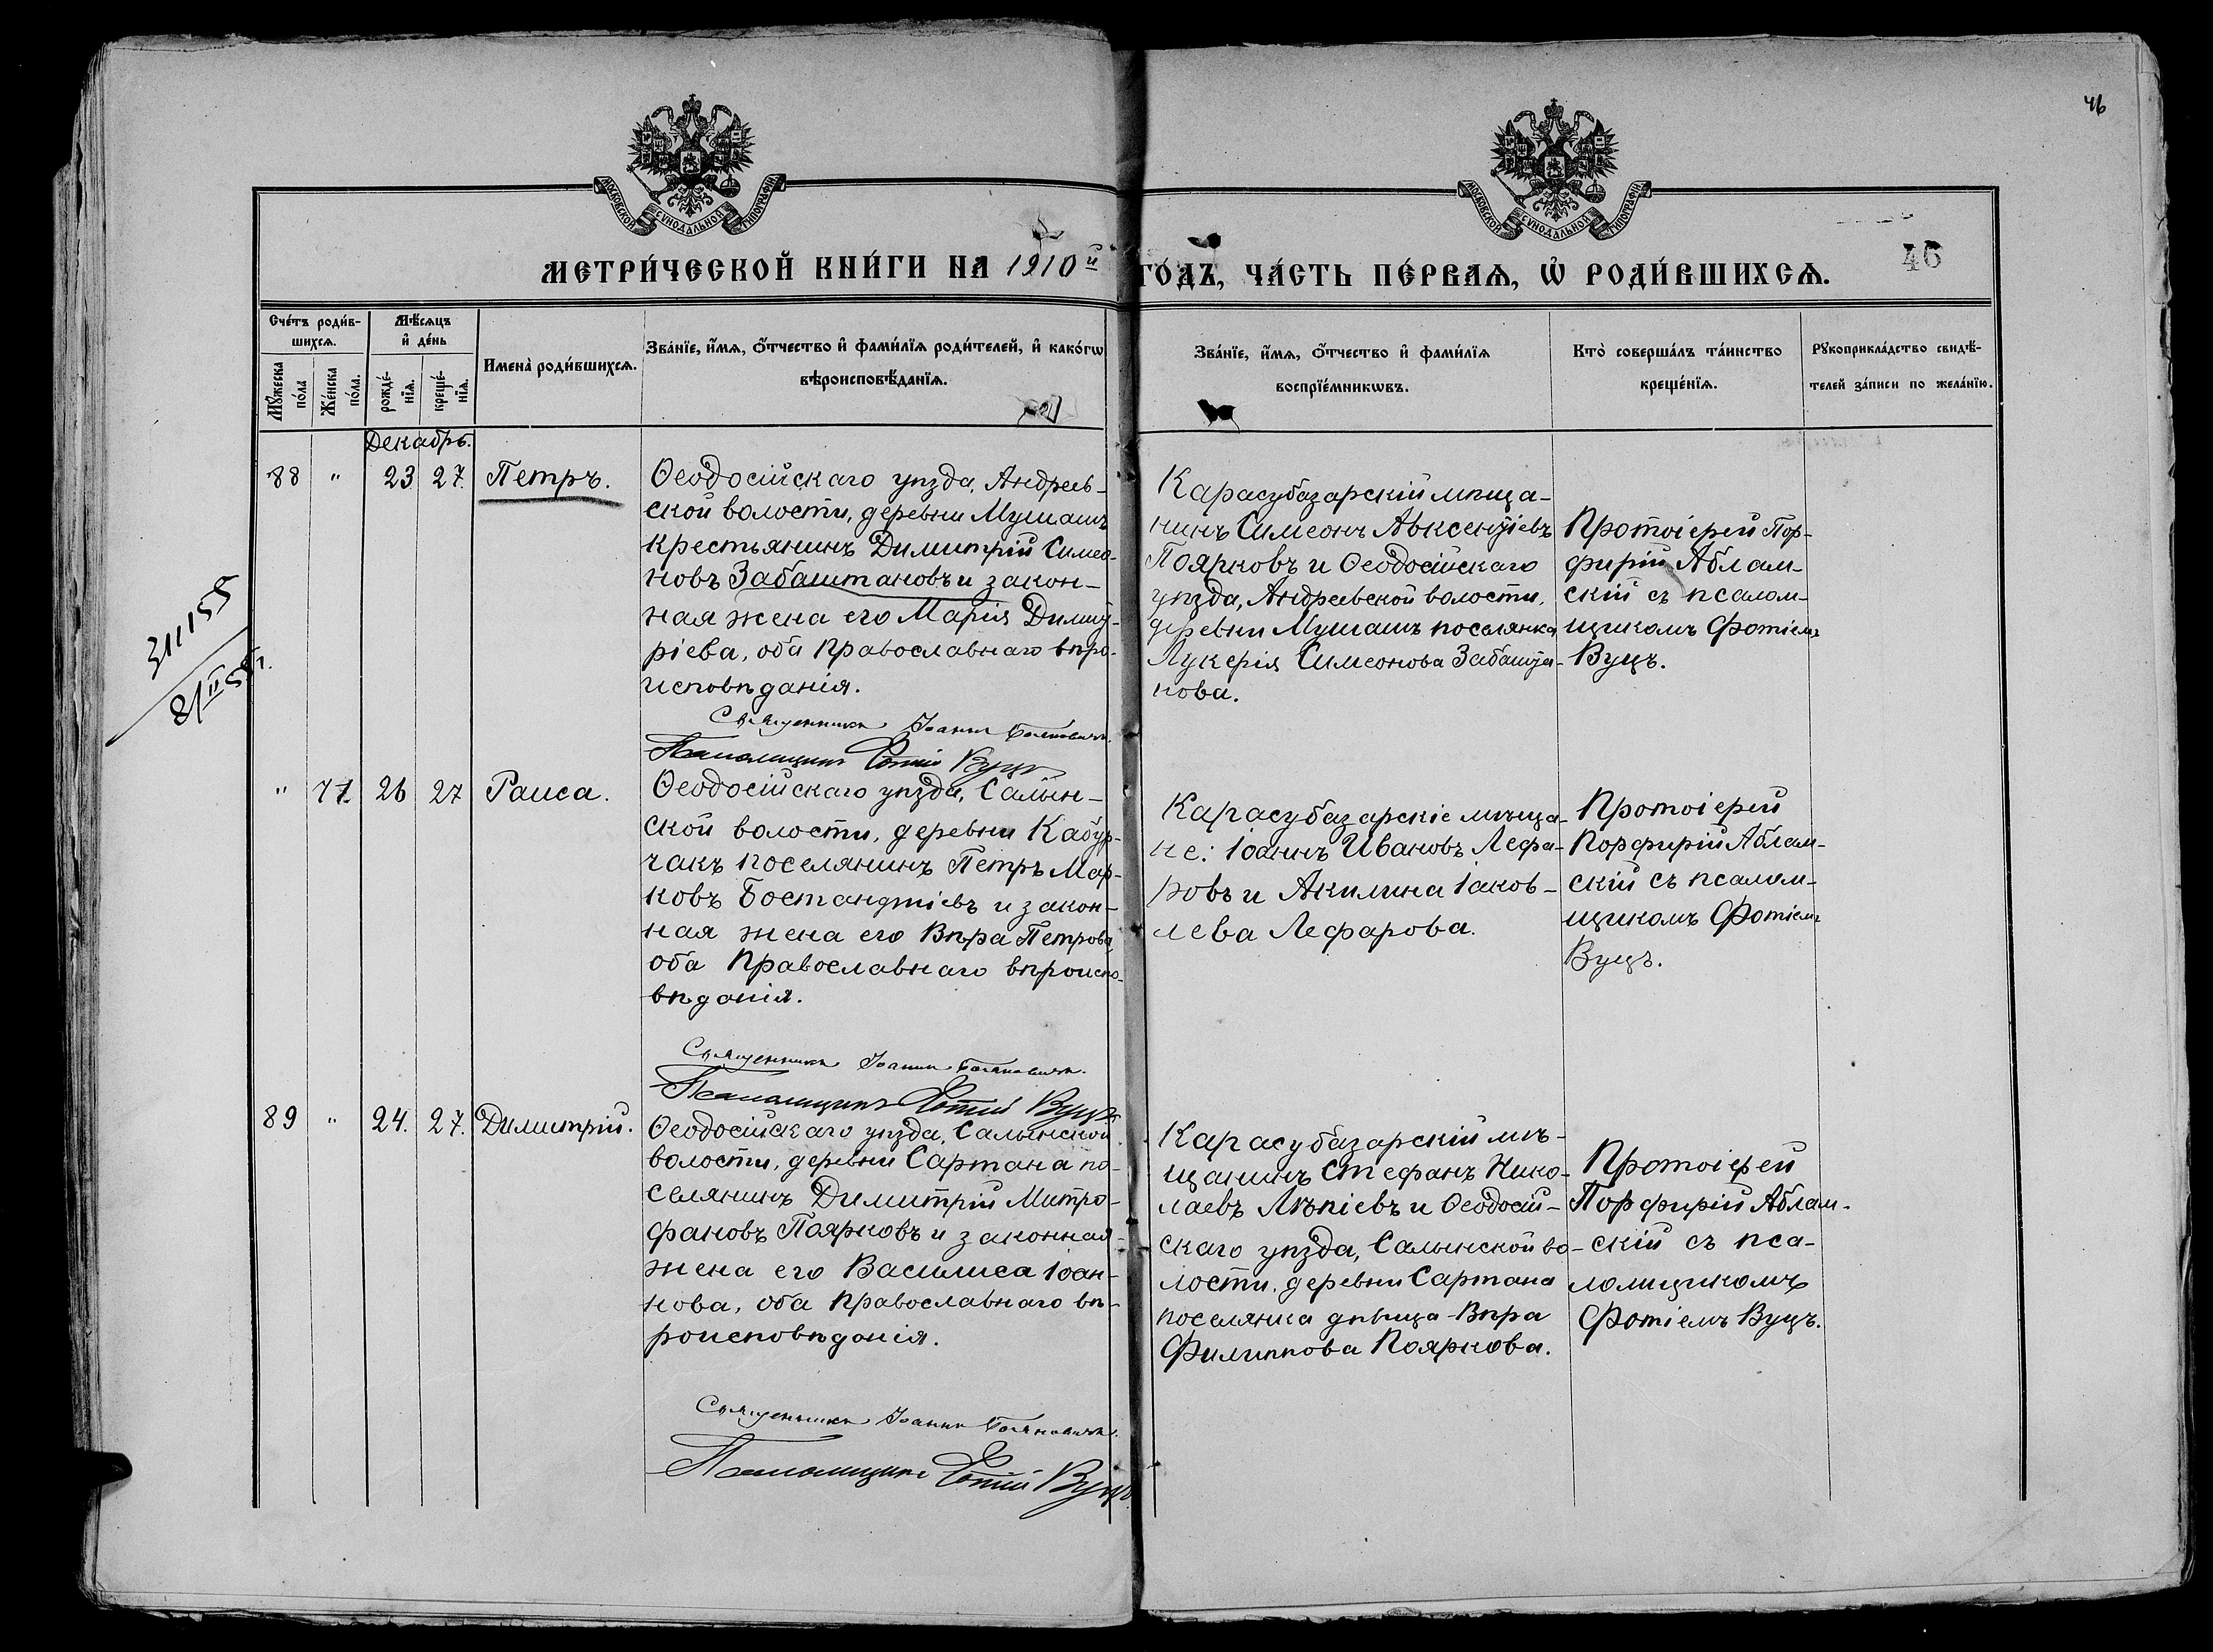 46
МОСКОВСКОЙ СѴНОДАЛЬНОЙ ТИПОГРАФІИ
МОСКОВСКОЙ СѴНОДАЛЬНОЙ ТИПОГРАФІИ
46
МЕТРИ́ЧЕСКОЙ КНИ́ГИ НА 1910й ГО́ДЪ, ЧА́СТЬ ПЕ́РВАѦ, Ѡ҆ РОДИ́ВШИХСѦ.
Сче́тъ роди́в-
шихсѧ.
Мꙋ́жеска
по́ла
Же́нска
по́ла.
Мѣ́сѧцъ
и҆ де́нь
рожде́-
нїѧ.
креще́-
нїѧ.
Имена̀ роди́вшихсѧ.
Зва́нїе, и҆́мѧ, ѻ҆́тчество и҆ фами́лїѧ роди́телей, и҆ како́гѡ
вѣроисповѣ́данїѧ.
Зва́нїе, и҆́мѧ, ѻ҆́тчество и҆ фами́лїѧ
воспрїе́мникѡвъ.
Кто̀ соверша́лъ та́инство
креще́нїѧ.
Рꙋкоприкла́дство свидѣ́-
телей за́писи по жела́нїю.
Декабрь.
88 " 23 27. Петръ.
Ѳеодосійскаго уѣзда, Андреев-
ской волости, деревни Мушашъ
крестьянинъ Димитрій Симео-
новъ Забаштановъ и закон-
ная жена его Марія Димит-
ріева, оба православнаго вѣро-
исповѣданія.
Священникъ Іоаннъ
Псаломщикъ Фотій Вуцъ
Карасубазарскій мѣща-
нинъ Симеонъ Авксентіевъ
Поярковъ и Ѳеодосійскаго
уѣзда, Андреевской волости,
деревни Мушашъ поселянка
Лукерія Симеонова Забашта-
нова.
Протоіерей Пор-
фирій Аблам-
скій съ псалом-
щикомъ Фотіемъ
Вуцъ.
" 71 26 27 Раиса.
Ѳеодосійскаго уѣзда, Салын-
ской волости, деревни Кабур-
чакъ поселянинъ Петръ Мар-
ковъ Бостанджіевъ и закон-
ная жена его Вѣра Петрова,
оба православнаго вѣроиспо-
вѣданія.
Священникъ Іоаннъ
Псаломщикъ Фотій Вуцъ
Карасубазарскіе мѣща-
не: Іоаннъ Ивановъ Лефа-
ровъ и Акилина Іаков-
лева Лефарова.
Протоіерей
Порфирій Аблам-
скій съ псалом-
щикомъ Фотіемъ
Вуцъ.
89 " 24. 27. Димитрій.
Ѳеодосійскаго уѣзда, Салынской
волости, деревни Сартана по-
селянинъ Димитрій Митро-
фановъ Поярковъ и законная
жена его Василиса Іоан-
нова, оба православнаго вѣ-
роисповѣданія.
Священникъ Іоаннъ
Псаломщикъ Фотій Вуцъ
Карасубазарскій мѣ-
щанинъ Стефанъ Нико-
лаевъ Лѣпіевъ и Ѳеодосій-
скаго уѣзда, Салынской во-
лости, деревни Сартана
поселянка дѣвица Вѣра
Филиппова Пояркова.
Протоіерей
Порфирій Аблам-
скій съ пса-
ломщикомъ
Фотіемъ Вуцъ.